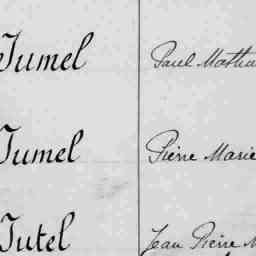 Jumel Paul Mathu
Jumel Pierre Marie
Jutel Jean Pierre M